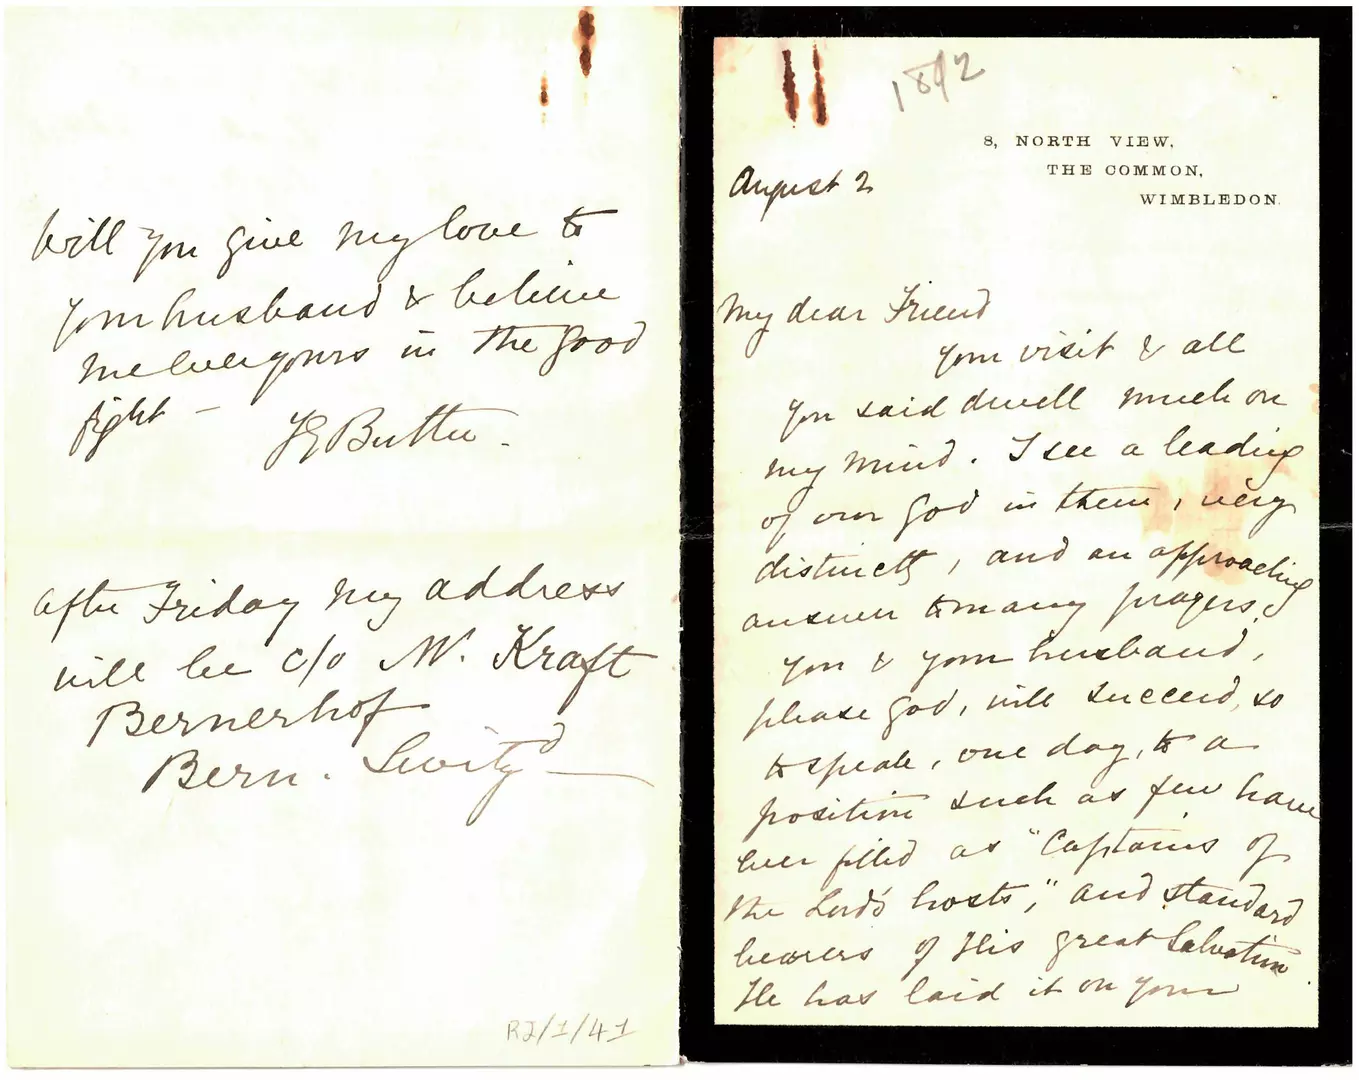 1892
8, NORTH VIEW,
THE COMMON,
WIMBLEDON.
August 2
My dear Friend
Your visit & all
you said dwell much on
my mind. I see a leading
of our God in them, very
distinctly, and an approaching
answer to many prayers.
You & your husband,
please God, will succeed, so
to speak, one day, to a
position such as few have
ever filled as "Captains of
the Lord's hosts," and standard
bearers of His great Salvation
He has laid it on your
Will you give my love to
your husband & believe
me ever yours in the good
fight –
JEButler.
After Friday my address
will be c/o M. Kraft
Bernerhof
Bern. Switzd
RJ/1/41